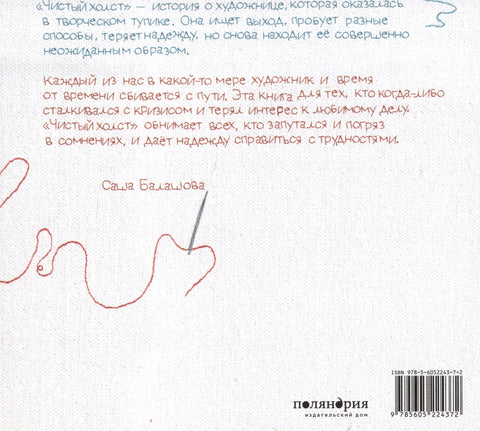 «Чистый холст» — история о художнице, которая оказалась
в творческом тупике. Она ищет выход, пробует разные
способы, теряет надежду, но снова находит её совершенно
неожиданным образом.
Каждый из нас в какой-то мере художник и время
от времени сбивается с пути. Эта книга для тех, кто когда-либо
сталкивался с кризисом и терял интерес к любимому делу.
«Чистый холст» обнимает всех, кто запутался и погряз
в сомнениях, и даёт надежду справиться с трудностями.
Саша Балашова
поляндрия
издательский дом
ISBN 978-5-6052243-7-2
9 785605 224372